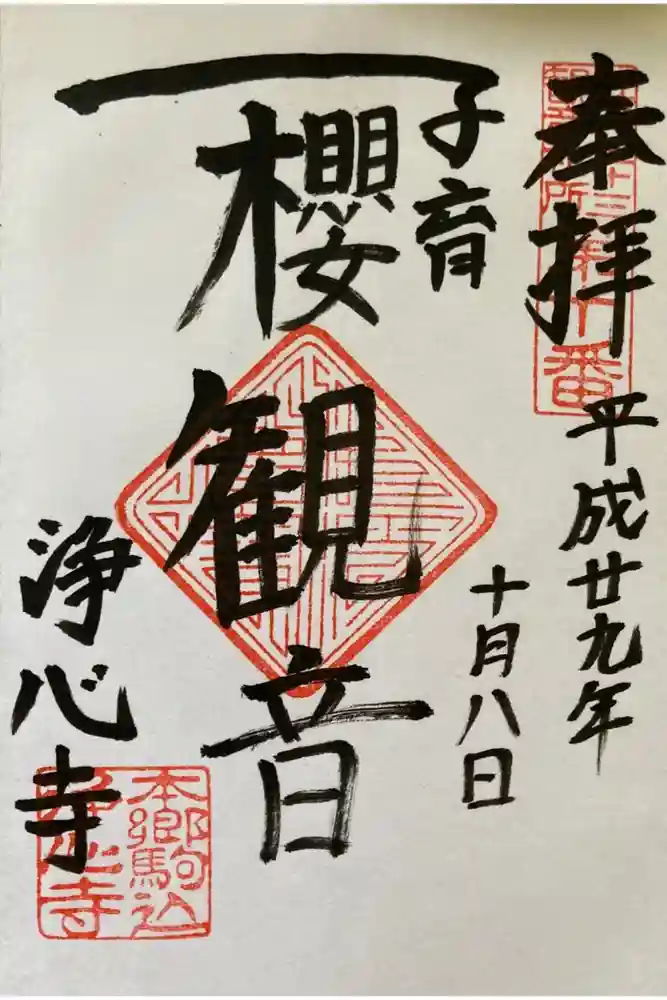 奉拝
平成廿九年
十月八日
子育
櫻観音
浄心寺
十番
本郷駒込
浄心寺